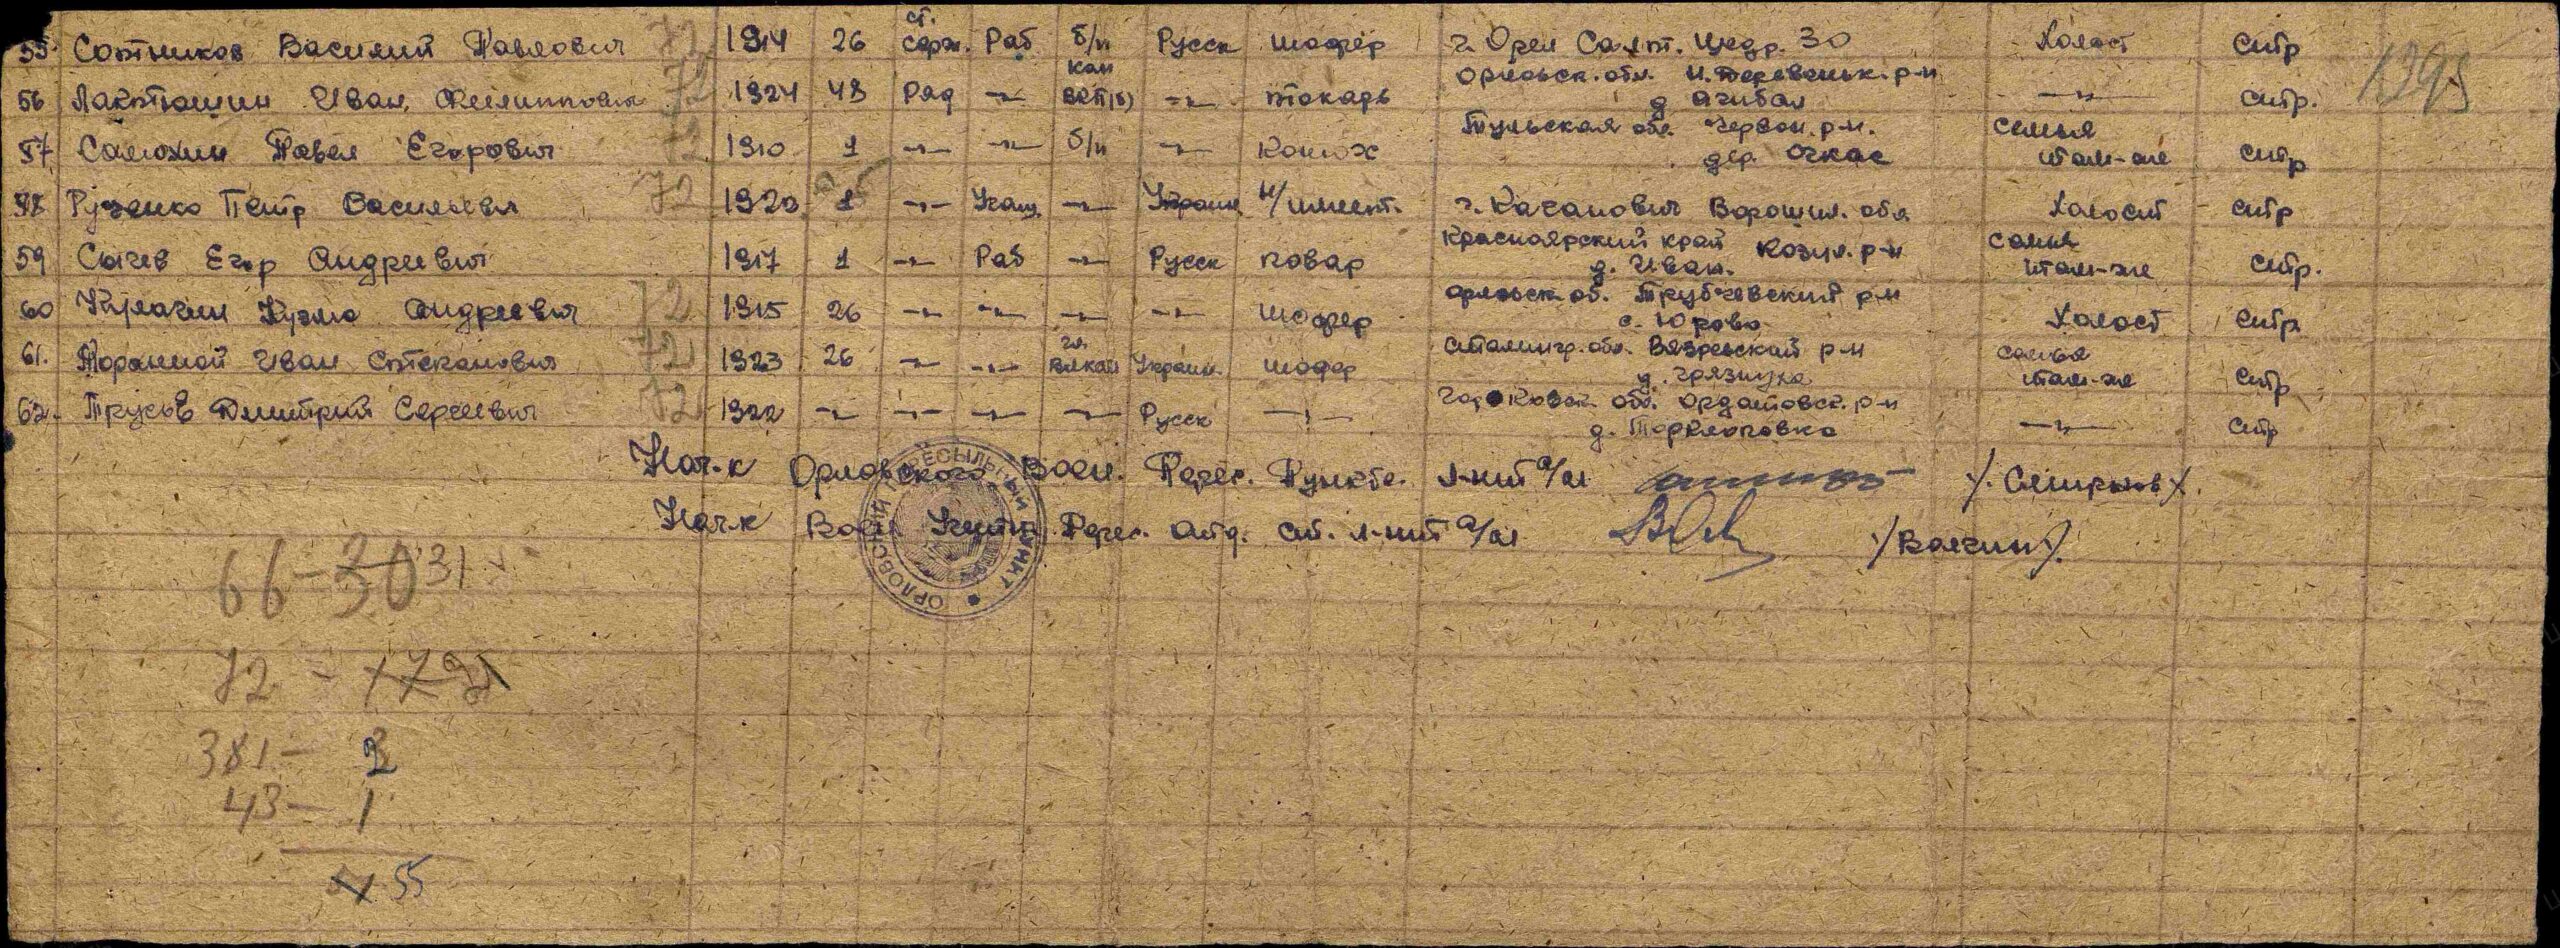 55. Сотников Василий Павлович 72 1914 26 ст. серж. Раб б/п Русск шофер г. Орел Салт. Щедр. 30 Холост стр
56 Лактюшин Иван Филиппович 72 1924 48 Ряд -"- ВКП(б) -"- токарь Орловск. обл. И. Деревеньк. р-н д -"- стр. 1395
57 Салюхин Павел Егорович 72 1910 1 -"- -"- б/п -"- Конюх Тульская обл. р-н. дер. семья там-же стр
58 Руденко Петр Васильевич 72 1920 1 -"- Учащ. -"- Украин н/имеет. г. Каганович Ворошил. обл Холост стр
59 Сычев Егор Андреевич 1917 1 -"- Раб -"- Русск повар Красноярский край Козул. р-н д. Иван. семья там-же стр.
60 Кулагин Кузма Андреевич 72 1915 26 -"- -"- -"- -"- шофер Орловск об. Трубчевский р-н с. Юрово Холост стр
61. Иван Степанович 72 1923 26 -"- -"- чл. ВЛКСМ Украин. шофер Сталингр. обл. р-н д. Грязнуха семья там-же стр
62. Трусов Дмитрий Сергеевич 72 1922 -"- -"- -"- -"- Русск -"- Горьковск обл. Ордатовск. р-н д. -"- стр
Нач-к Орловского Воен. Перес. Пункта л-нт а/сл /.Смирнов/.
Нач-к Воен Перес. отд. ст. л-нт а/сл /Волгин/.
ОРЛОВСКИЙ ПЕРЕСЫЛЬНЫЙ ПУНКТ
66-30 31
72 -
381- 2
43- 1
55